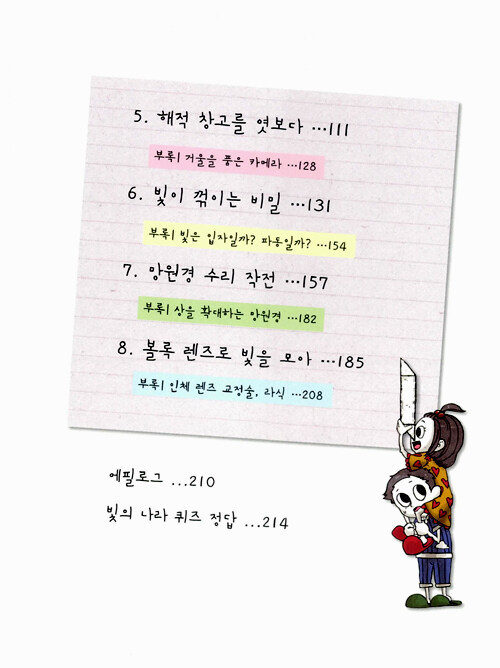 5. 해적 창고를 엿보다 ···111
부록| 거울을 품은 카메라 ···128
6. 빛이 꺾이는 비밀 ···131
부록| 빛은 입자일까? 파동일까? ···154
7. 망원경 수리 작전 ···157
부록| 상을 확대하는 망원경 ···182
8. 볼록 렌즈로 빛을 모아 ···185
부록| 인체 렌즈 교정술, 라식 ···208
에필로그 ...210
빛의 나라 퀴즈 정답 ...214